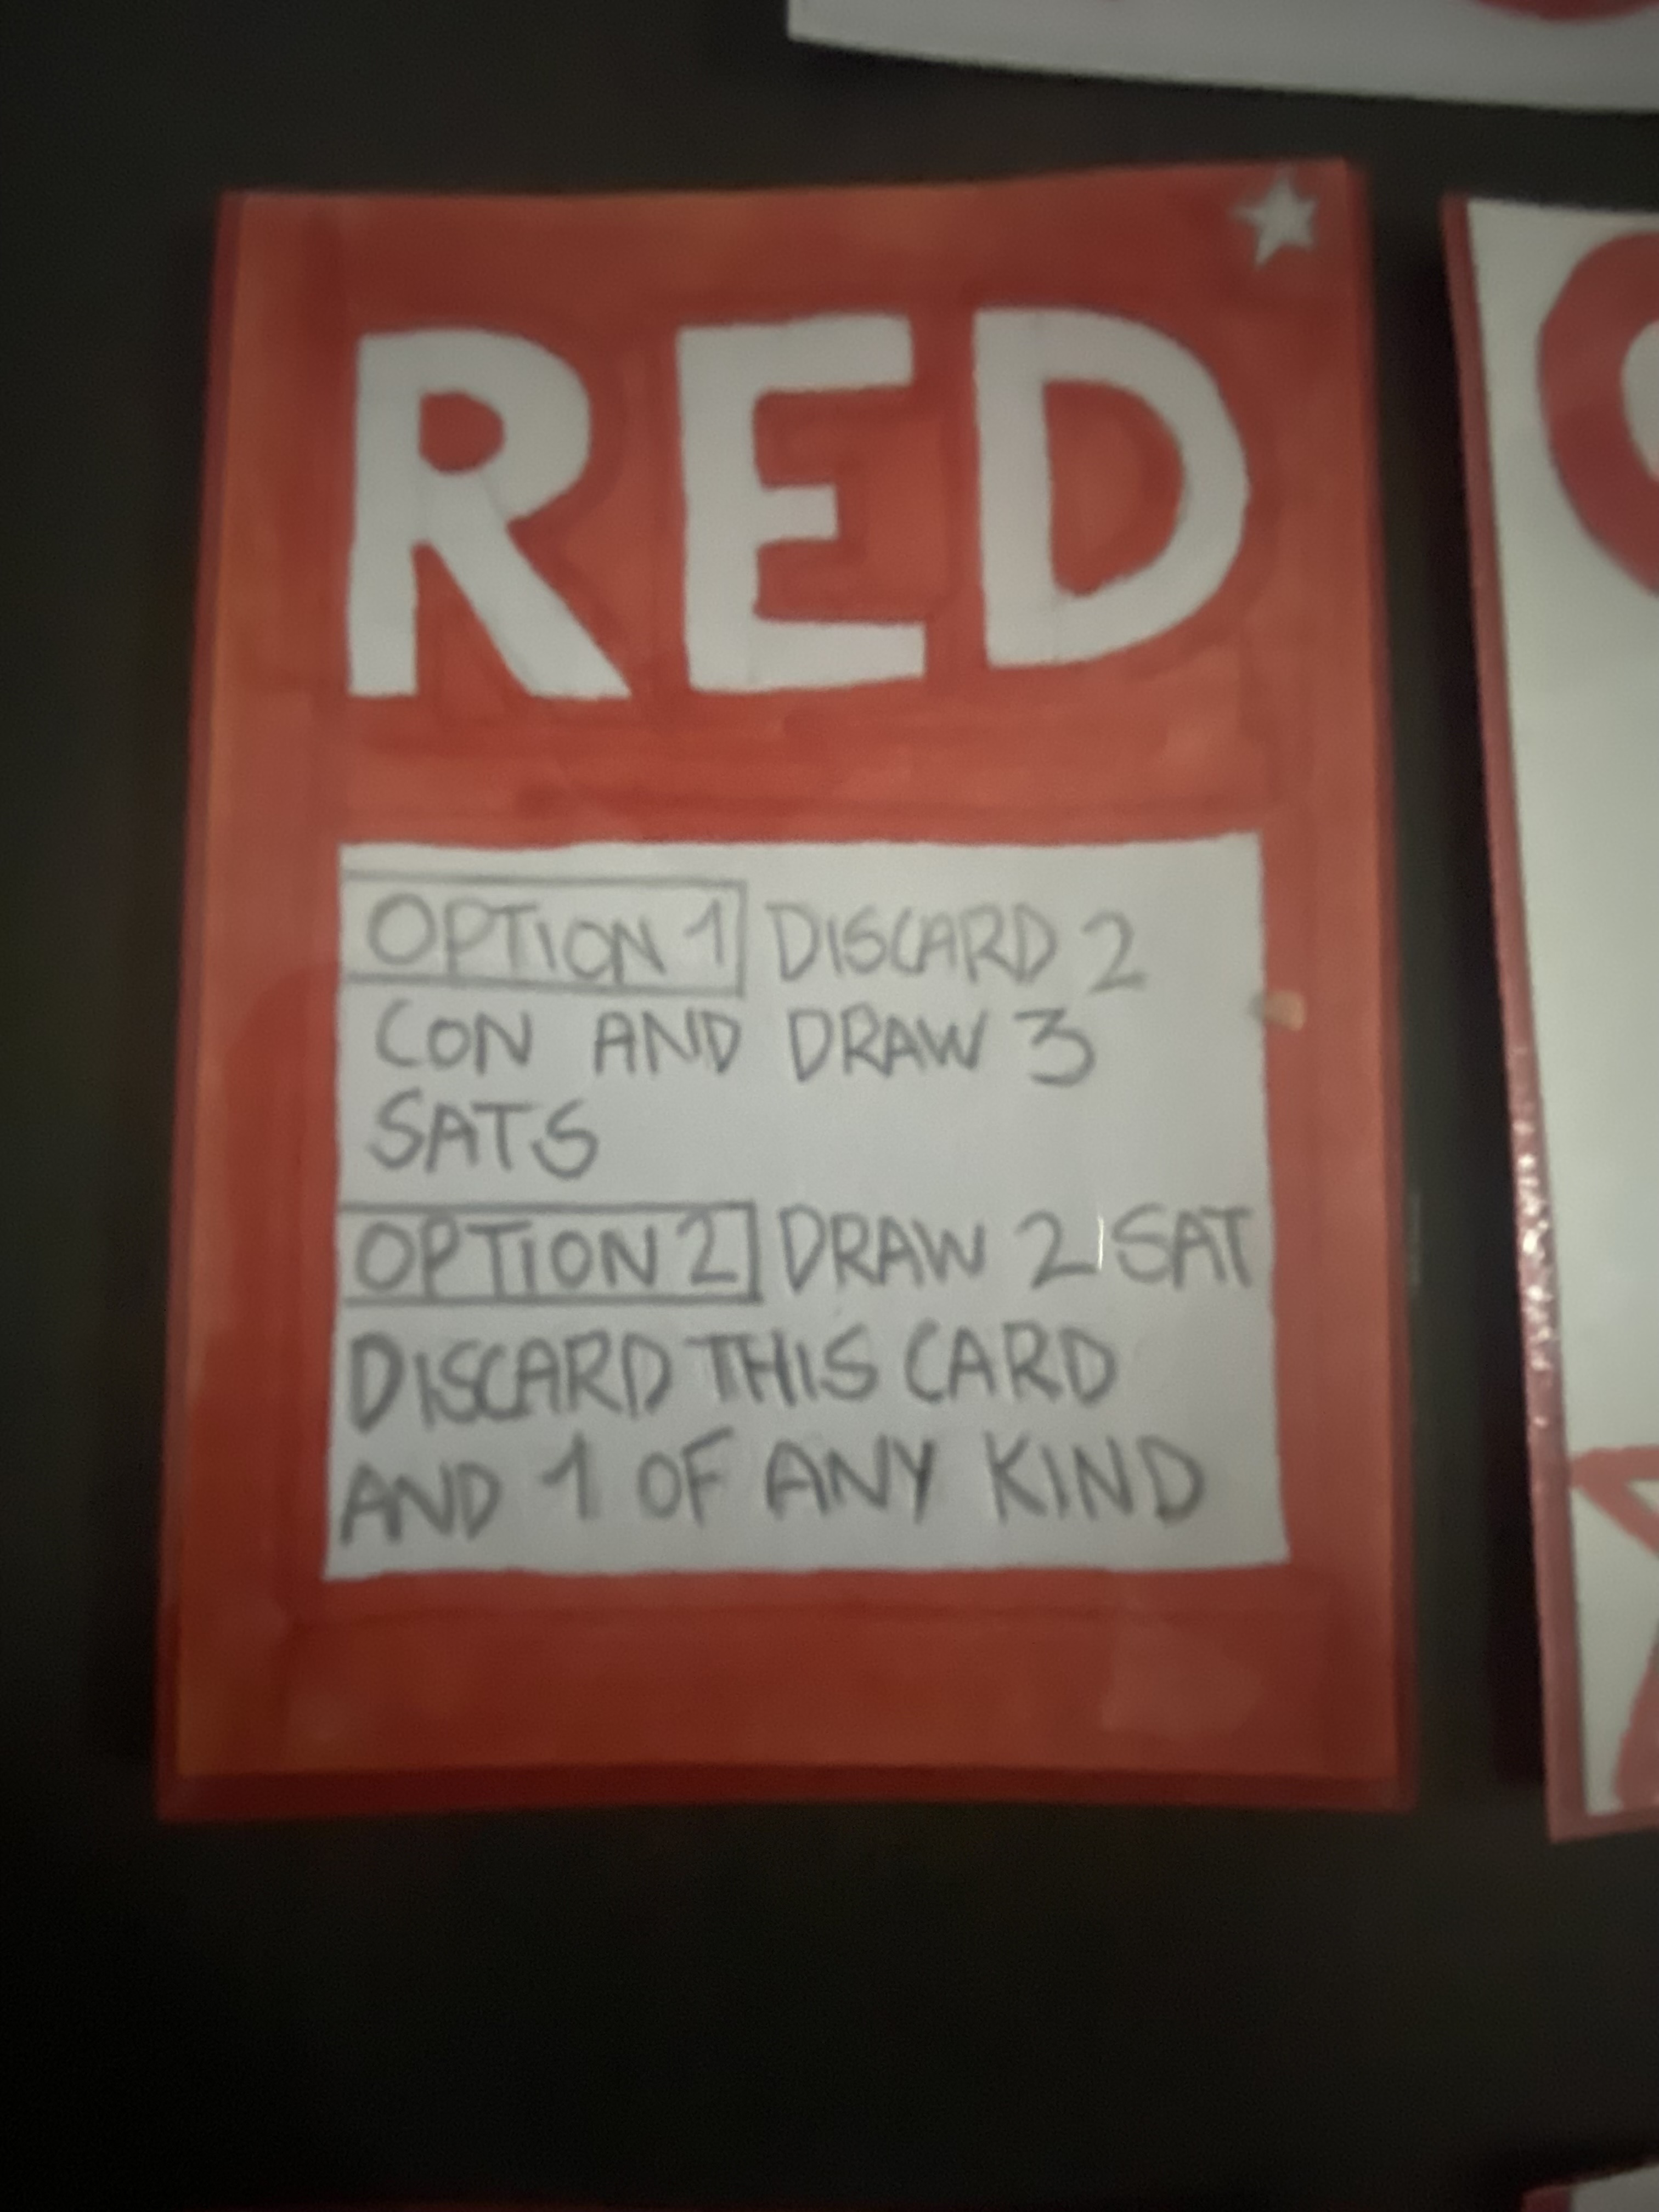 RED
OPTION 1 DISCARD 2
CON AND DRAW 3
SATS
OPTION 2 DRAW 2 SAT
DISCARD THIS CARD
AND 1 OF ANY KIND